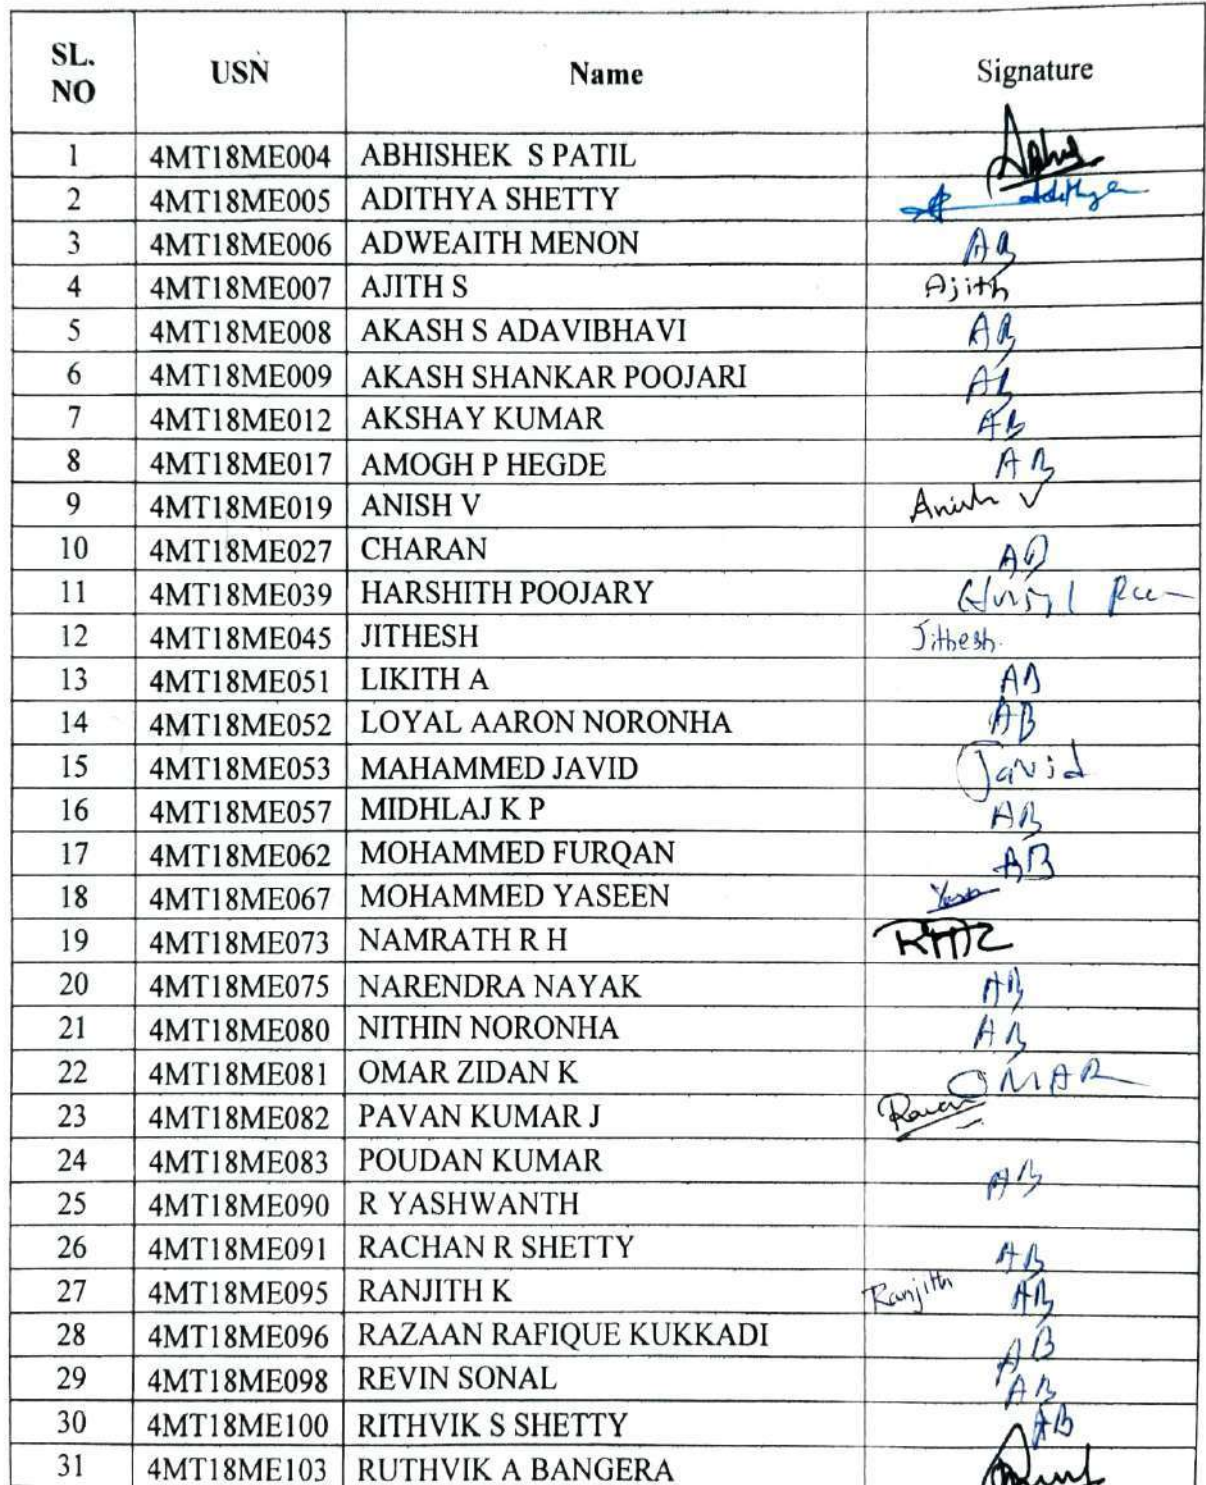 SL. NO USN Name Signature
1 4MT18ME004 ABHISHEK S PATIL
2 4MT18ME005 ADITHYA SHETTY Adithya
3 4MT18ME006 ADWEAITH MENON AB
4 4MT18ME007 AJITH S Ajith
5 4MT18ME008 AKASH S ADAVIBHAVI AB
6 4MT18ME009 AKASH SHANKAR POOJARI AB
7 4MT18ME012 AKSHAY KUMAR AB
8 4MT18ME017 AMOGH P HEGDE AB
9 4MT18ME019 ANISH V Anish V
10 4MT18ME027 CHARAN AB
11 4MT18ME039 HARSHITH POOJARY
12 4MT18ME045 JITHESH Jithesh.
13 4MT18ME051 LIKITH A AB
14 4MT18ME052 LOYAL AARON NORONHA AB
15 4MT18ME053 MAHAMMED JAVID Javid
16 4MT18ME057 MIDHLAJ K P AB
17 4MT18ME062 MOHAMMED FURQAN AB
18 4MT18ME067 MOHAMMED YASEEN
19 4MT18ME073 NAMRATH R H
20 4MT18ME075 NARENDRA NAYAK AB
21 4MT18ME080 NITHIN NORONHA AB
22 4MT18ME081 OMAR ZIDAN K OMAR
23 4MT18ME082 PAVAN KUMAR J
24 4MT18ME083 POUDAN KUMAR AB
25 4MT18ME090 R YASHWANTH
26 4MT18ME091 RACHAN R SHETTY AB
27 4MT18ME095 RANJITH K Ranjith AB
28 4MT18ME096 RAZAAN RAFIQUE KUKKADI AB
29 4MT18ME098 REVIN SONAL AB
30 4MT18ME100 RITHVIK S SHETTY AB
31 4MT18ME103 RUTHVIK A BANGERA